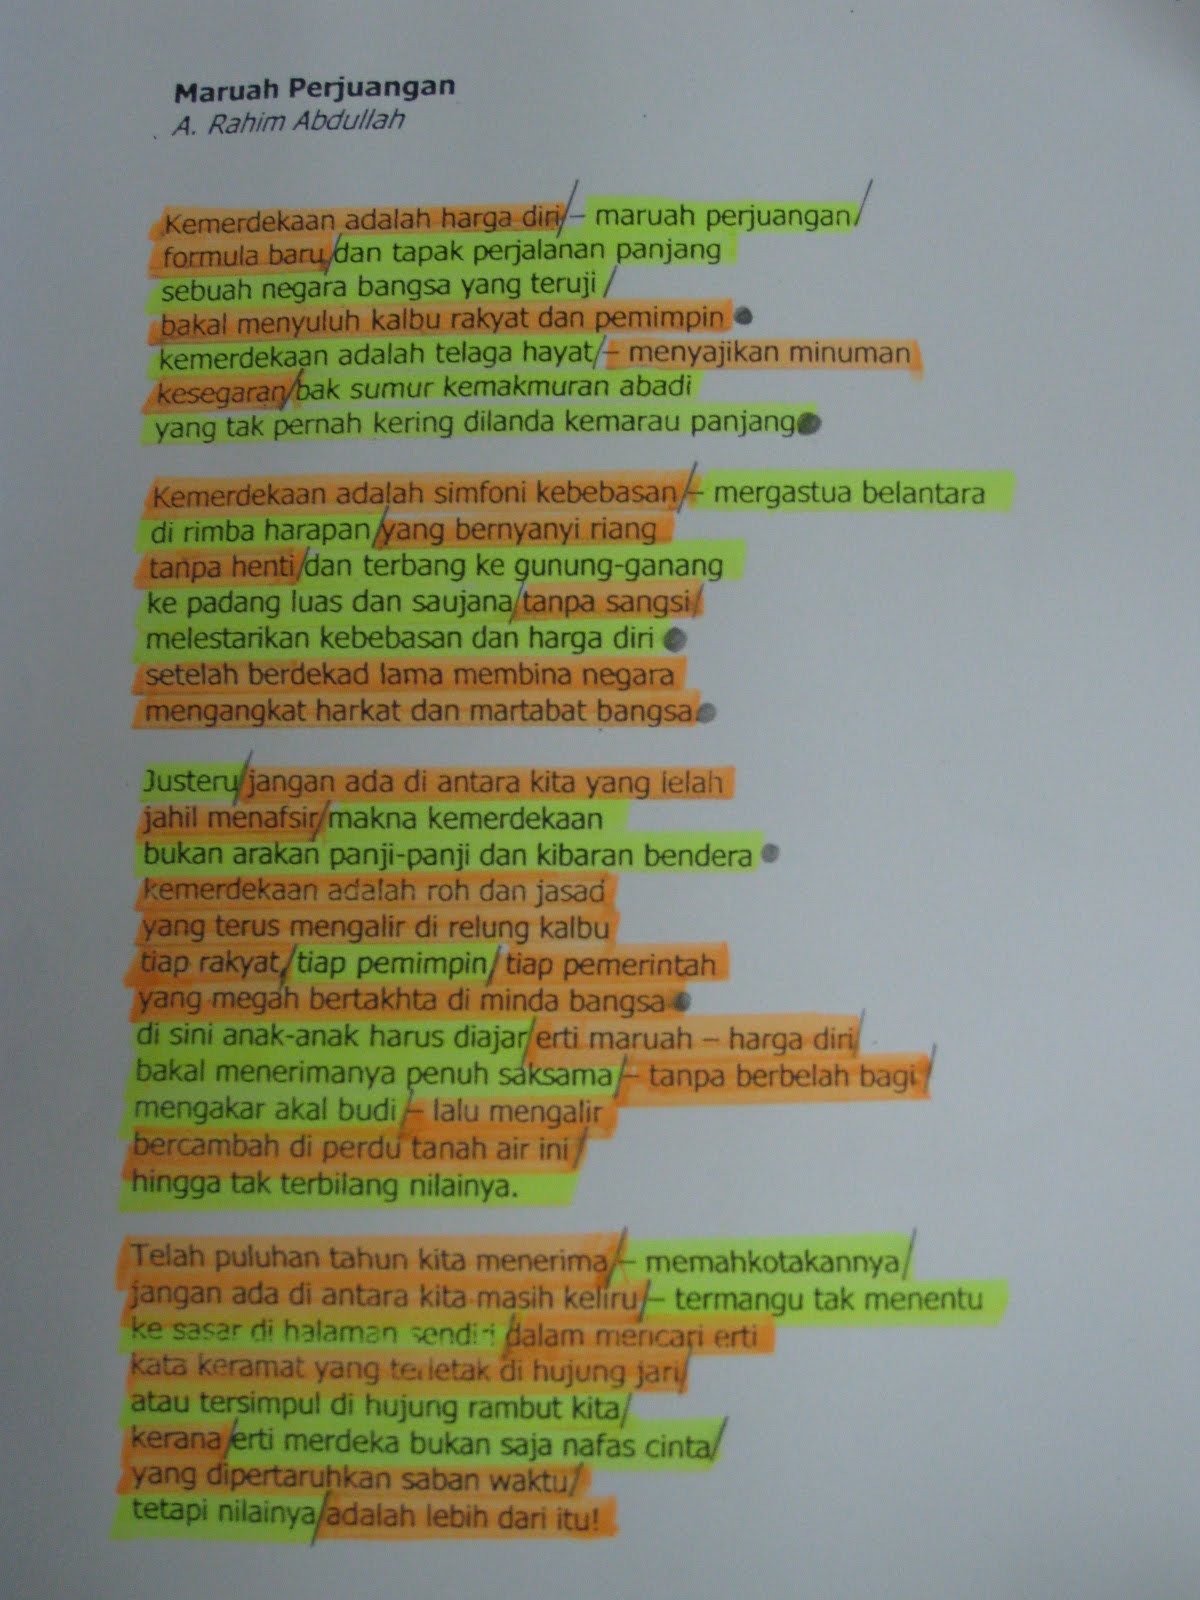 Maruah Perjuangan
A. Rahim Abdullah
Kemerdekaan adalah harga diri/ – maruah perjuangan/
formula baru/dan tapak perjalanan panjang
sebuah negara bangsa yang teruji /
bakal menyuluh kalbu rakyat dan pemimpin
kemerdekaan adalah telaga hayat/– menyajikan minuman
kesegaran/bak sumur kemakmuran abadi
yang tak pernah kering dilanda kemarau panjang
Kemerdekaan adalah simfoni kebebasan/– mergastua belantara
di rimba harapan/yang bernyanyi riang
tanpa henti/dan terbang ke gunung-ganang
ke padang luas dan saujana/tanpa sangsi/
melestarikan kebebasan dan harga diri
setelah berdekad lama membina negara
mengangkat harkat dan martabat bangsa.
Justeru/jangan ada di antara kita yang lelah
jahil menafsir/makna kemerdekaan
bukan arakan panji-panji dan kibaran bendera
kemerdekaan adalah roh dan jasad
yang terus mengalir di relung kalbu
tiap rakyat,/tiap pemimpin/tiap pemerintah
yang megah bertakhta di minda bangsa
di sini anak-anak harus diajar/erti maruah – harga diri/
bakal menerimanya penuh saksama/– tanpa berbelah bagi/
mengakar akal budi/– lalu mengalir
bercambah di perdu tanah air ini/
hingga tak terbilang nilainya.
Telah puluhan tahun kita menerima/– memahkotakannya/
jangan ada di antara kita masih keliru/– termangu tak menentu
ke sasar di halaman sendiri/dalam mencari erti
kata keramat yang terletak di hujung jari/
atau tersimpul di hujung rambut kita/
kerana/erti merdeka bukan saja nafas cinta/
yang dipertaruhkan saban waktu/
tetapi nilainya/adalah lebih dari itu!